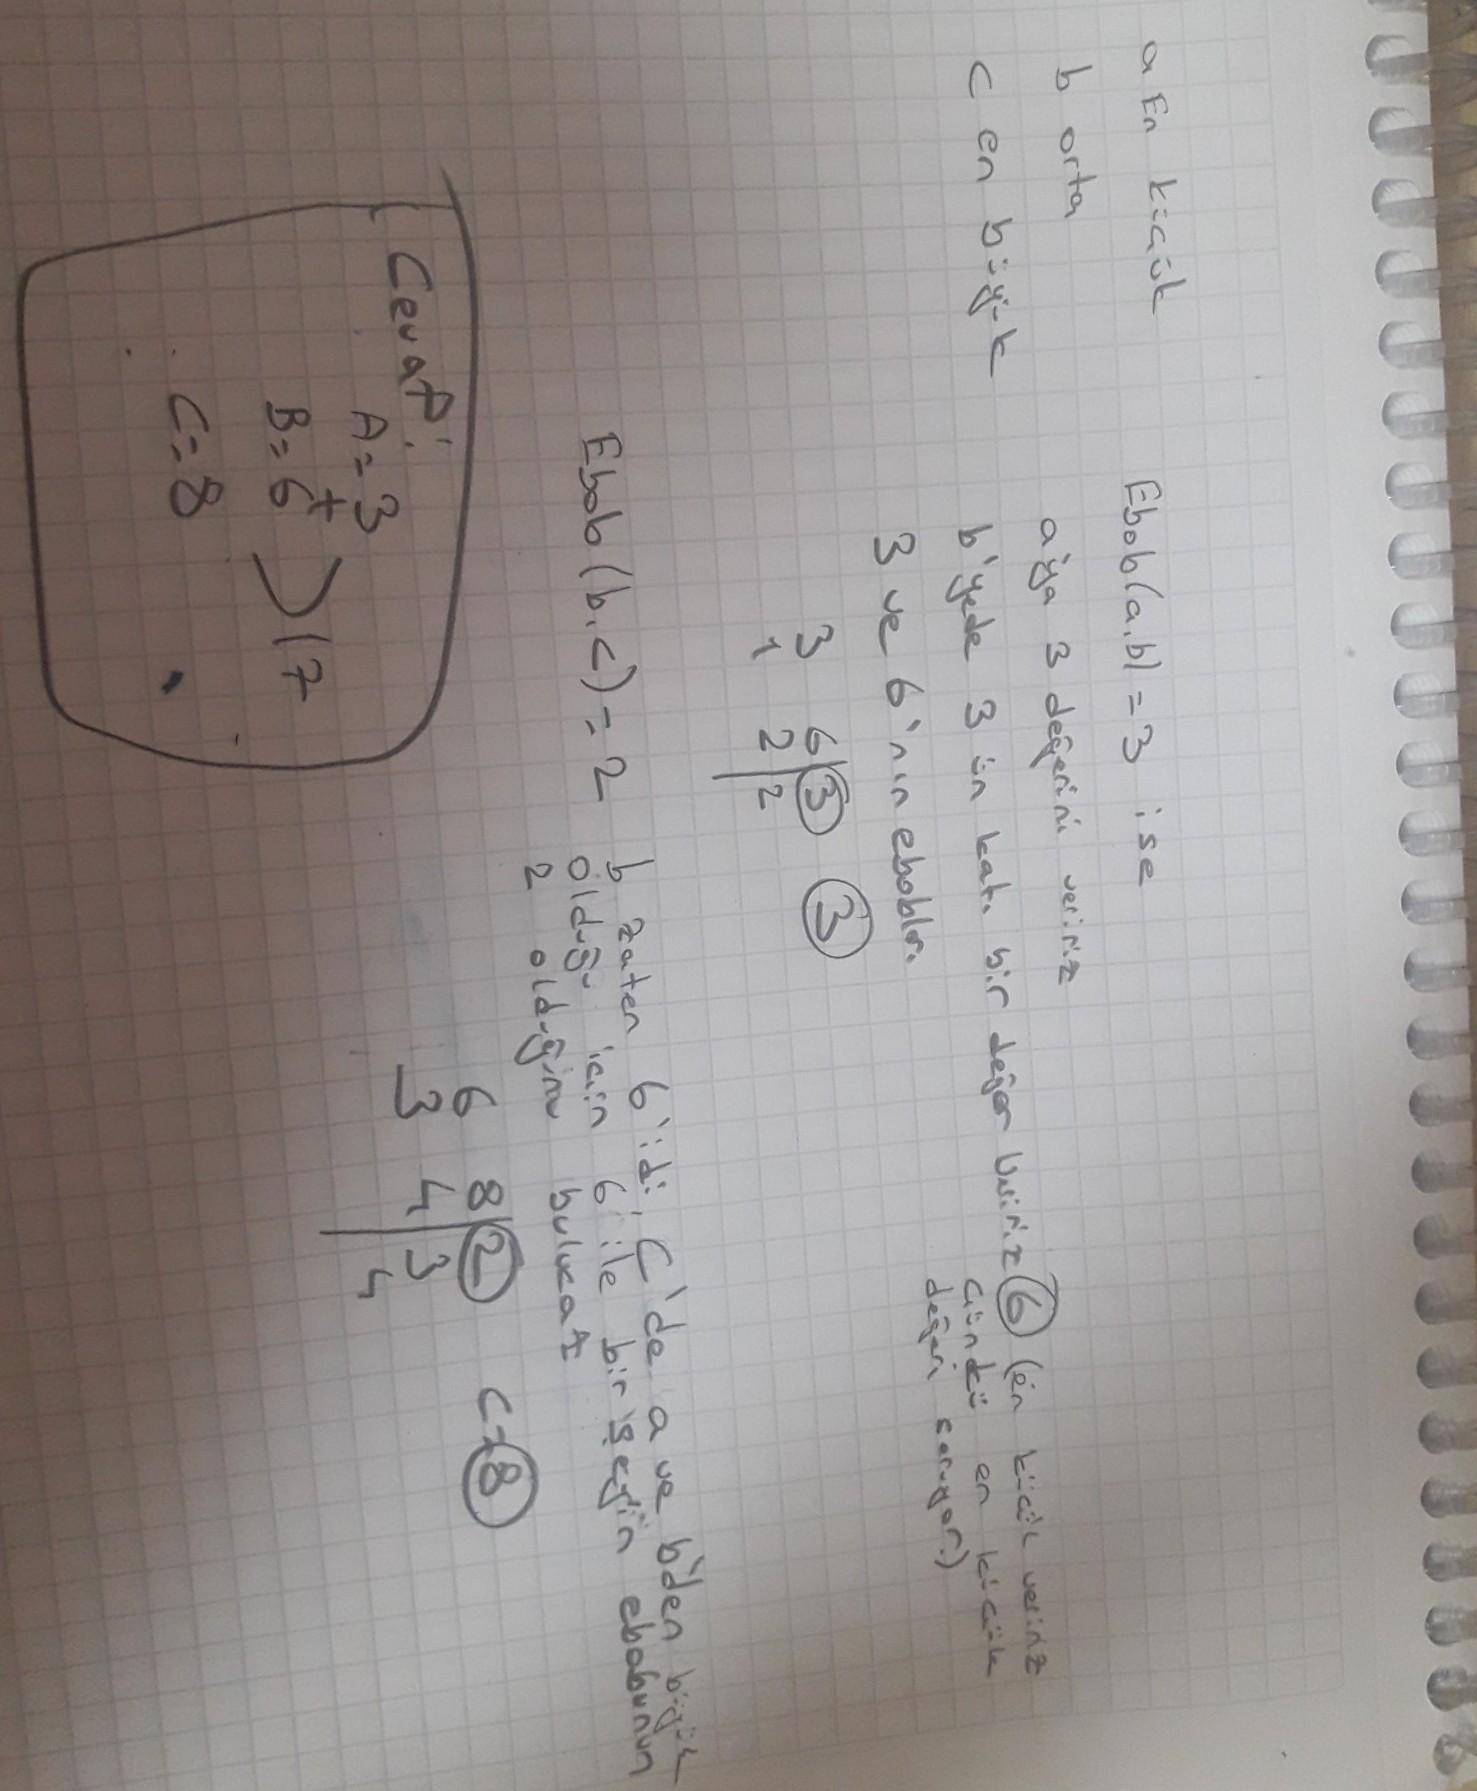 a En küçük
b orta
c en büyük
Ebob(a,b)=3 ise
a'ya 3 değerini veririz
b'yede 3 ün katı bir değer veririz 6 (en küçük veririz
çünkü en küçük
değeri soruyor.)
3 ve 6'nın ebobları
3 6 3 3
1 2 2
Ebob(b,c)=2
b zaten 6'idi C'de a ve b'den büyük
olduğu için 6 ile bir şeyin ebobunun
2 olduğunu bulucaz
6 8 2 C=8
3 4 3
4
Cevap:
A=3
+
B=6 17
C=8